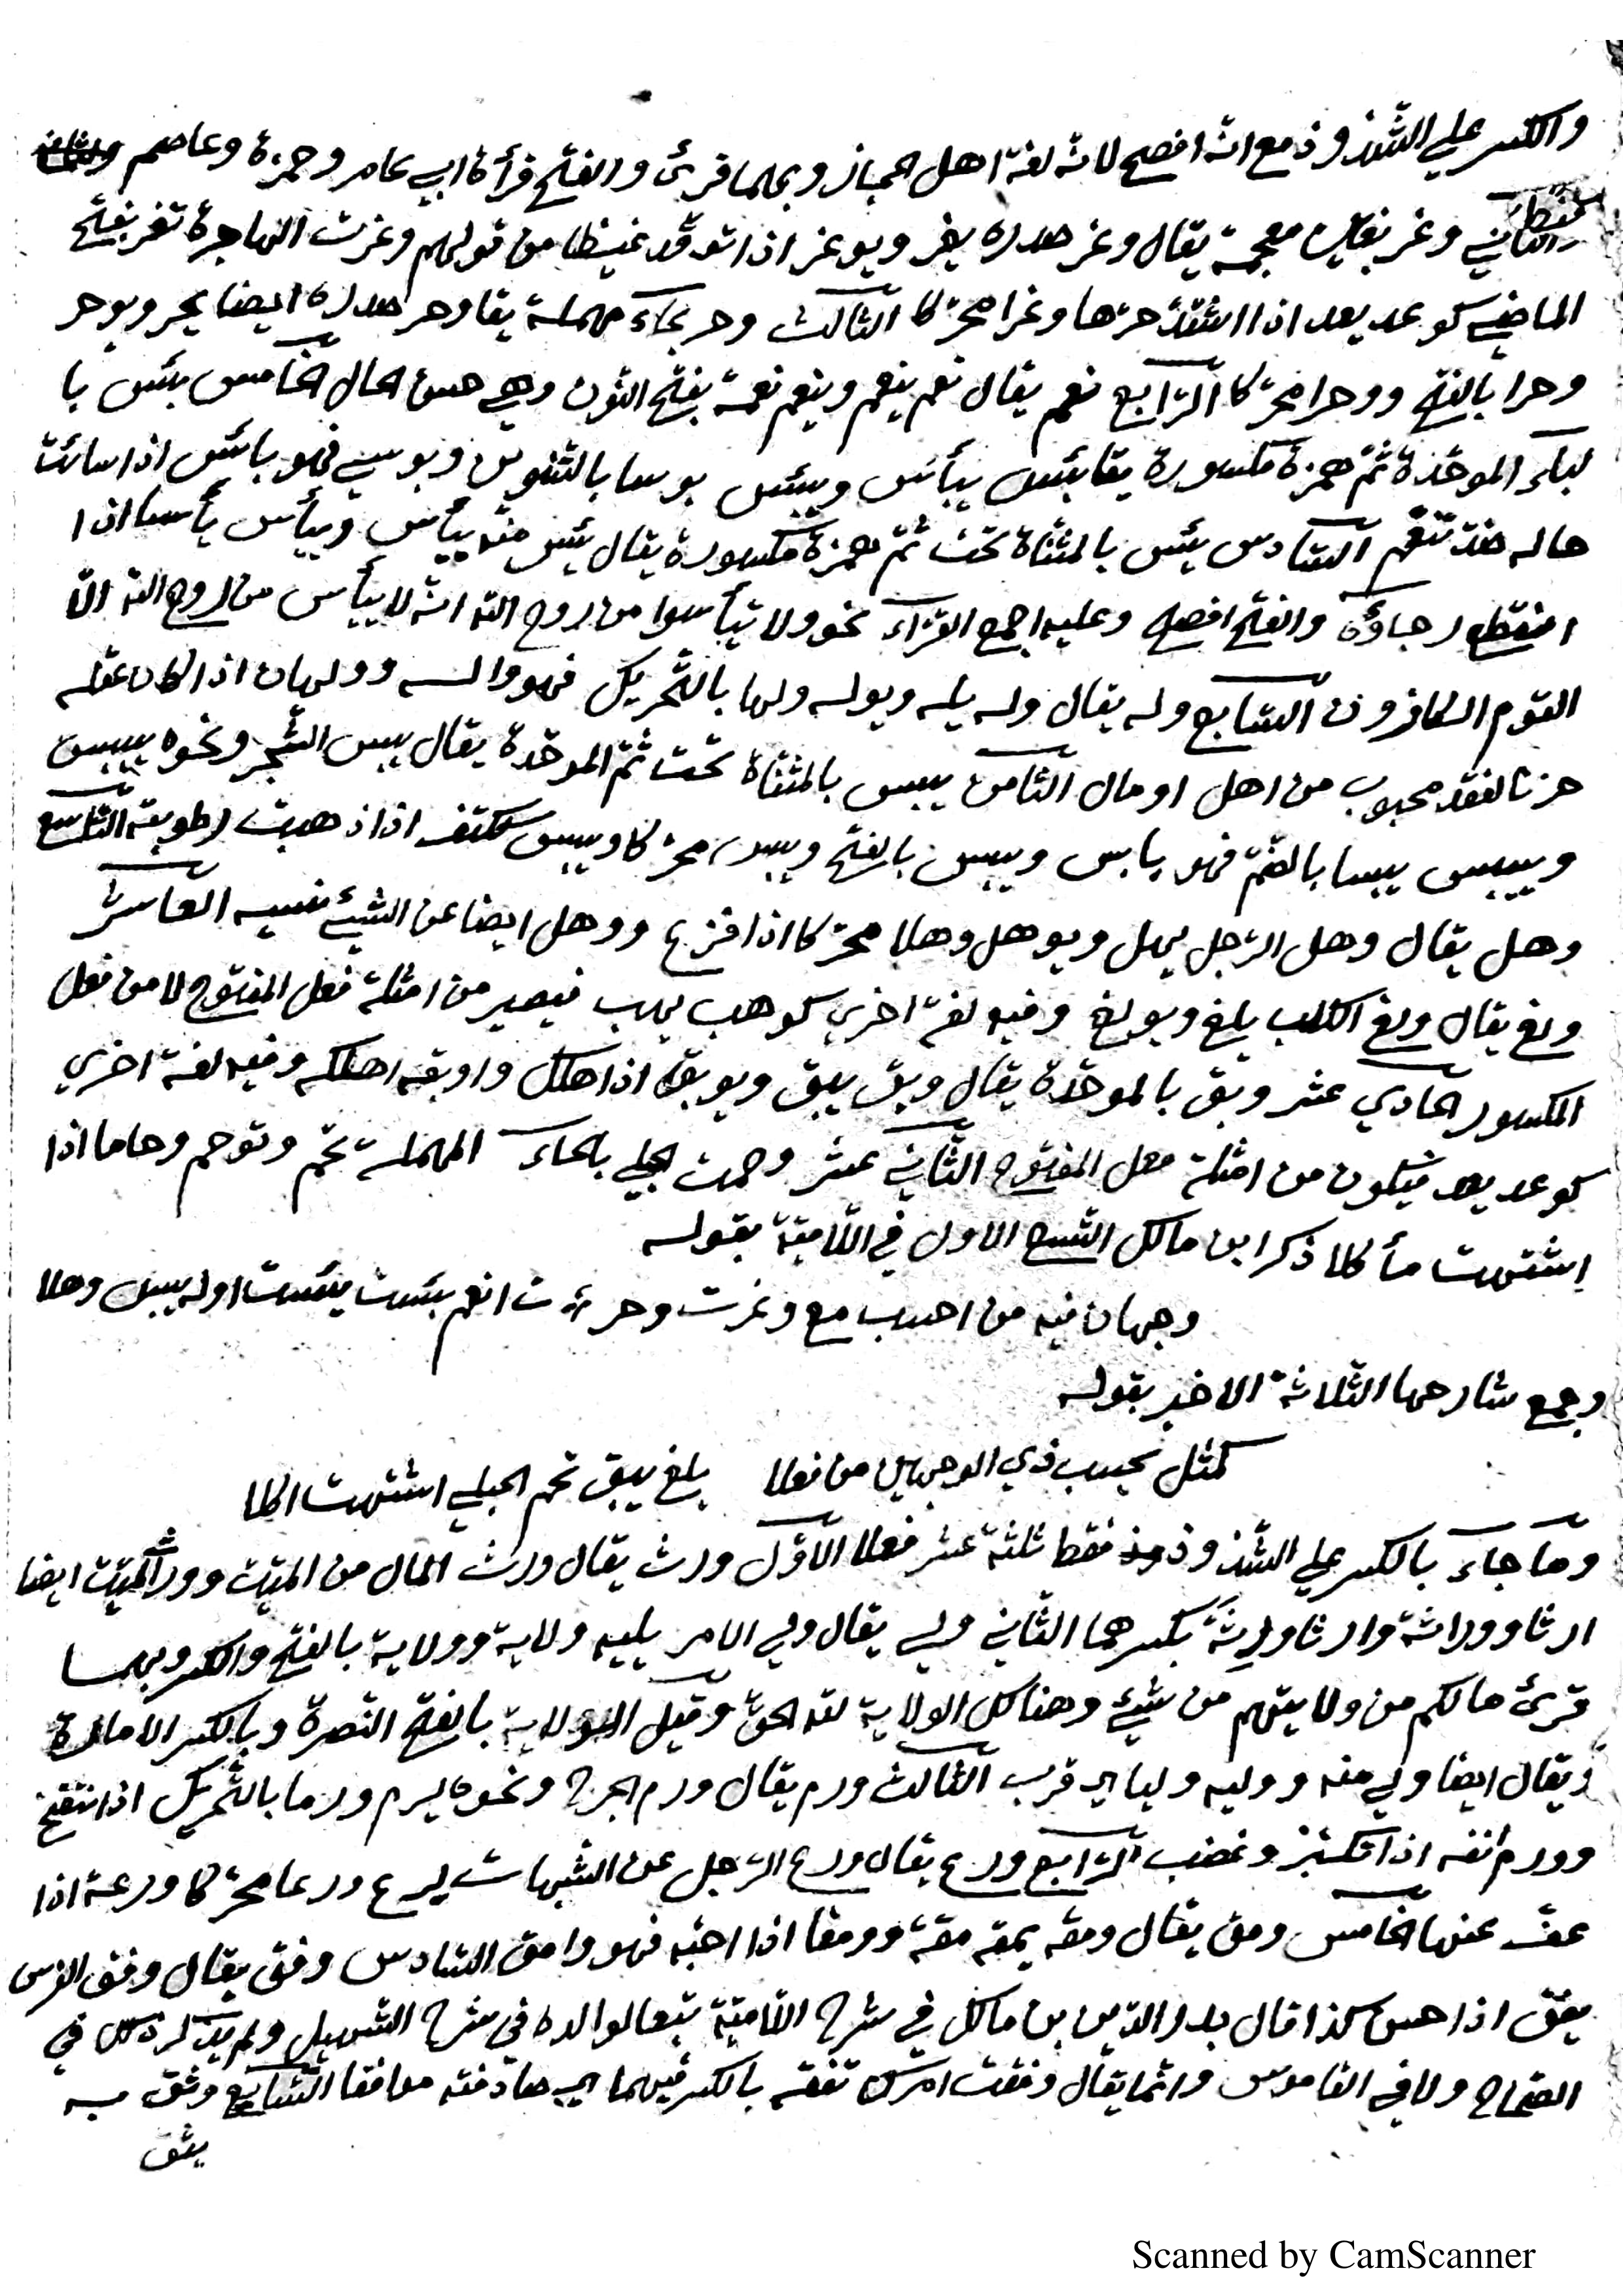 والكسر علي الشذوذ مع انه افصح لانه لغة اهل الحجاز وبهما قرئ والفتح قرأة ابي عامر وحمزة وعاصم
الثاني وغر بغين معجمة يقال وغر صدره يغر ويوغر اذا توقد غيظا من قولهم وغرت الهاجرة تغر بفتح
الماضي كوعد يعد اذا اشتد حرها وغرا محركا الثالث وحر بحاء مهملة يقا وحر صدره ايضا يحر ويوحر
وحرا بالفتح ووحرا محركا الرابع نعم يقال نعم ينعم وينعم نعمة بفتح النون وهي حسن الحال الخامس بئس با
لباء الموحدة ثم همزة مكسورة يقا بئس يبأس ويبئس بوسا بالتنوين وبوسي فهو بائس اذا سائت
حاله ضد تنعم السادس يئس بالمثناة تحت ثم همزة مكسورة يقال يئس منه ييأس وييأس يأسا اذا
انقطع رجاؤه والفتح افصح وعليه اجمع القراء نحو ولا تيأسوا من روح الله انه لا ييأس من روح الله الا
القوم الكافرون السابع وله يقال وله يله ويوله ولها بالتحريك فهو واله وولهان اذا كان عقله
حزنا لفقد محبوب من اهل او مال الثامن يبس بالمثناة تحت ثم الموحدة يقال يبس الشجر ونحوه ييبس
وييبس يبسا بالضم فهو يابس ويبس بالفتح ويبس محركا ويبس ككتف اذا ذهبت رطوبته التاسع
وهل يقال وهل الرجل يهل ويوهل وهلا محركا اذا فزع ووهل ايضا عن الشيئ نسيه العاشر
ولغ يقال ولغ الكلب يلغ ويولغ وفيه لغة اخري كوهب يهب فيصير من امثلة فعل المفتوح لا من فعل
المكسور الحادي عشر وبق بالموحدة يقال وبق يبق ويوبق اذا هلك واوبقه اهلكه وفيه لغة اخري
كوعد يعد فيكون من امثلة فعل المفتوح الثاني عشر وحمت الحبلي بالحاء المهملة تحم وتوحم وحاما اذا
اشتهت مأكلا ذكر ابن مالك التسع الاول في اللامية بقوله
وجهان فيه من احسب مع وغرت وحرت انعم بئست يئست اوله يبس وهلا
وجمع شارحها الثلاثة الاخير بقوله
كمثل يحسب ذي الوجهين من فعلا يلغ يبق تحم الحبلي اشتهت اكلا
وما جاء بالكسر علي الشذوذ فقط ثلثة عشر فعلا الاول ورث يقال ورث المال من الميت وورث الميت ايضا
ارثا ووراثة وارثا ورِثَةً بكسرهما الثاني ولي يقال ولي الامر يليه ولاية وولاية بالفتح والكسر وبهما
قرئ مالكم من ولايتهم من شيئ وهنالك الولاية لله الحق وقيل الولاية بالفتح النصرة وبالكسر الامارة
ويقال ايضا ولي منه ووليه وليا اي قرب الثالث ورم يقال ورم الجرح ونحوه يرم ورما بالتحريك اذا انتفخ
وورم انفه اذا تكبر وغضب الرابع ورع يقال ورع الرجل عن الشبهات يرع ورعا محركا ورعة اذا
عف عنها الخامس ومق يقال ومقه يمقه مقة وومقا اذا احبه فهو وامق السادس وفق يقال وفق الفرس
يفق اذا حسن كذا قال بدر الدين بن مالك في شرح اللامية تبعا لوالده في شرح التسهيل ولم يذكره في
الصحاح ولا في القاموس وانما يقال وفقت امرك تفقه بالكسر فيهما اي صادفته موافقا السابع وثق به
يثق
Scanned by CamScanner